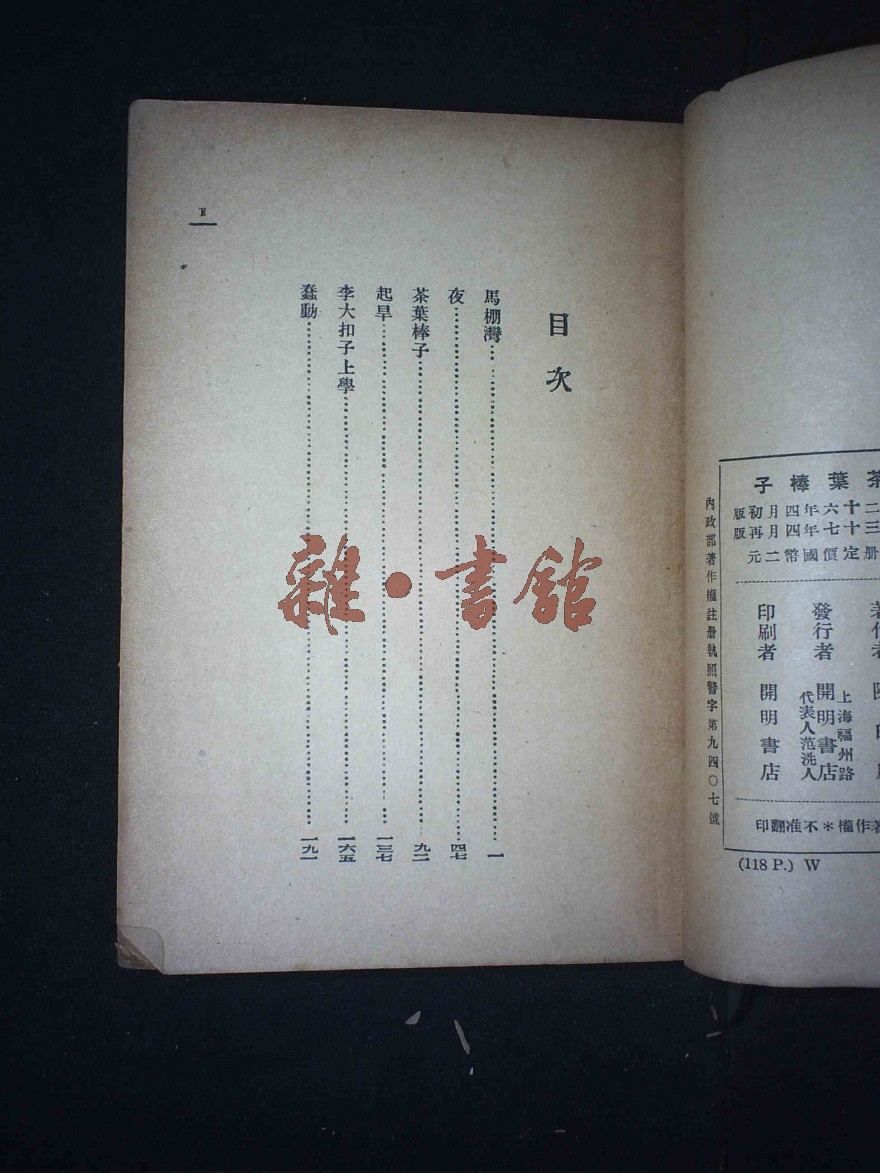 茶葉棒子
二十六年四月初版
三十七年四月再版
册定價國幣二元
發行者
上海福州路
開明書店
代表人范洗人
印刷者 開明書店
著作權＊不准翻印
(118 P.) W
內政部著作權註册執照警字第九四〇七號
目次
馬棚灣……一
夜……四七
茶葉棒子……九二
起旱……一三七
李大扣子上學……一六五
蠢動……一九一
雜·書館